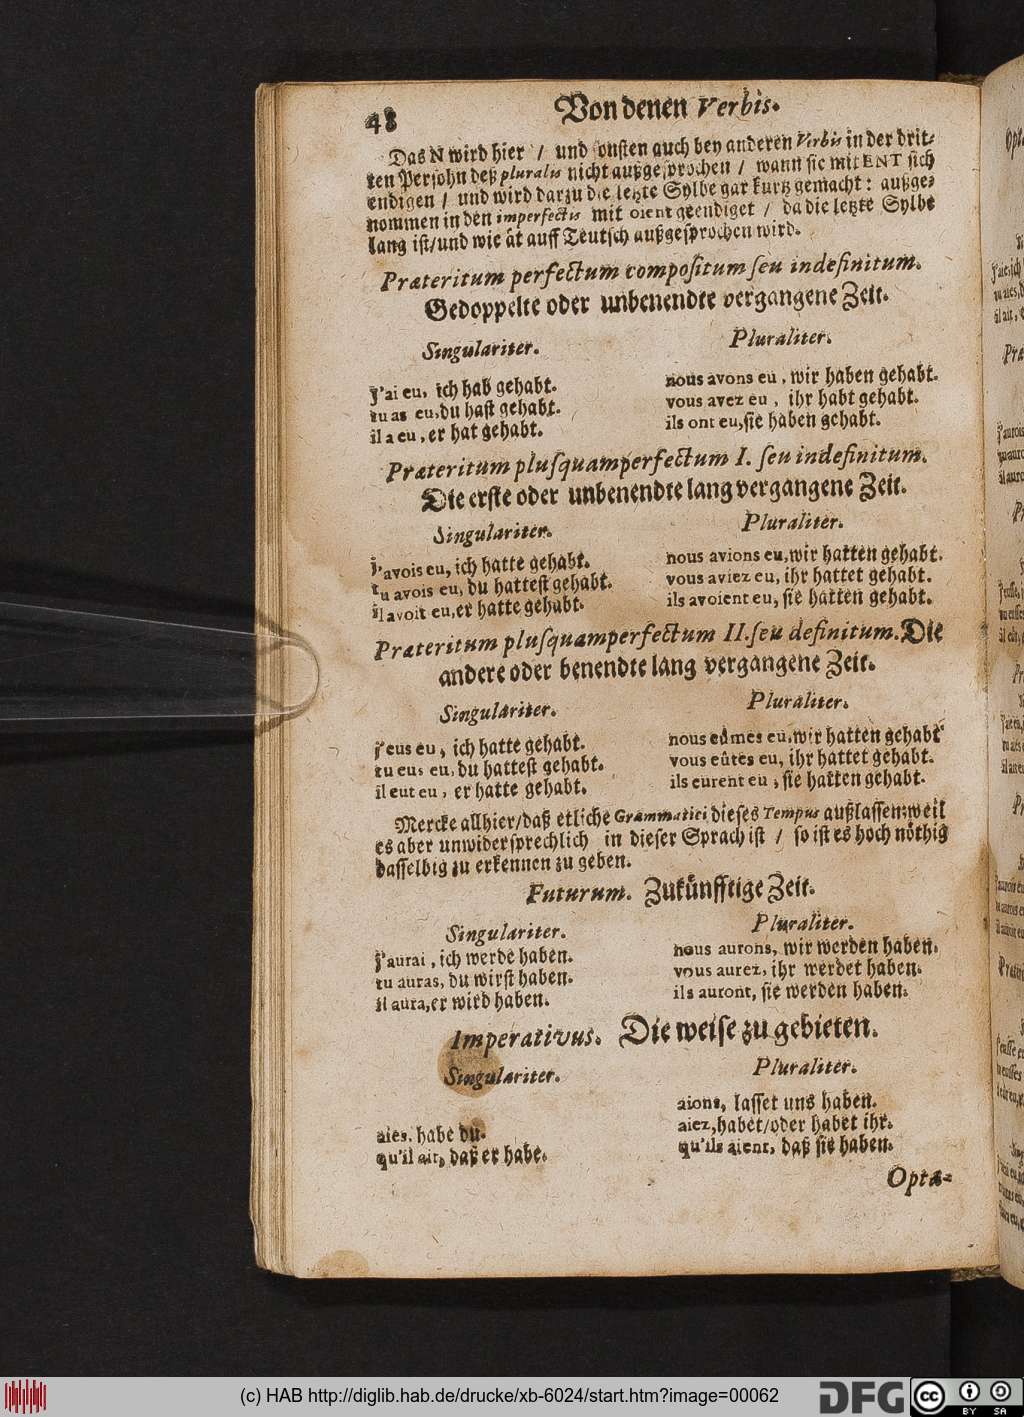 48
Von denen Verbis.
Das N wird hier / und sonsten auch bey anderen Verbis in der drit-
ten Persohn deß pluralis nicht außgesprochen / wann sie mit ENT sich
endigen / und wird darzu die letzte Sylbe gar kurtz gemacht: außge-
nommen in den imperfectis mit oient geendiget / da die letzte Sylbe
lang ist/und wie ät auff Teutsch außgesprochen wird.
Præteritum perfectum compositum seu indefinitum.
Gedoppelte oder unbenendte vergangene Zeit.
Singulariter.
Pluraliter.
j'ai eu, ich hab gehabt.
nous avons eu, wir haben gehabt.
tu as eu, du hast gehabt.
vous avez eu, ihr habt gehabt.
il a eu, er hat gehabt.
ils ont eu, sie haben gehabt.
Præteritum plusquamperfectum I. seu indefinitum.
Die erste oder unbenendte lang vergangene Zeit.
Singulariter.
Pluraliter.
j'avois eu, ich hatte gehabt.
nous avions eu, wir hatten gehabt.
tu avois eu, du hattest gehabt.
vous aviez eu, ihr hattet gehabt.
il avoit eu, er hatte gehabt.
ils avoient eu, sie hatten gehabt.
Præteritum plusquamperfectum II. seu definitum. Die
andere oder benendte lang vergangene Zeit.
Singulariter.
Pluraliter.
j'eus eu, ich hatte gehabt.
nous eûmes eu, wir hatten gehabt
tu eus eu, du hattest gehabt.
vous eûtes eu, ihr hattet gehabt.
il eut eu, er hatte gehabt.
ils eurent eu, sie hatten gehabt.
Mercke allhier/daß etliche Grammatici dieses Tempus außlassen; weil
es aber unwidersprechlich in dieser Sprach ist / so ist es hoch nöthig
dasselbig zu erkennen zu geben.
Futurum. Zukünfftige Zeit.
Singulariter.
Pluraliter.
j'aurai, ich werde haben.
nous aurons, wir werden haben.
tu auras, du wirst haben.
vous aurez, ihr werdet haben.
il aura, er wird haben.
ils auront, sie werden haben.
Imperativus. Die weise zu gebieten.
Singulariter.
Pluraliter.
aions, lasset uns haben.
aies, habe du.
aiez, habet/oder habet ihr.
qu'il ait, daß er habe.
qu'ils aient, daß sie haben.
Opta-
(c) HAB http://diglib.hab.de/drucke/xb-6024/start.htm?image=00062
DFG
cc
BY SA